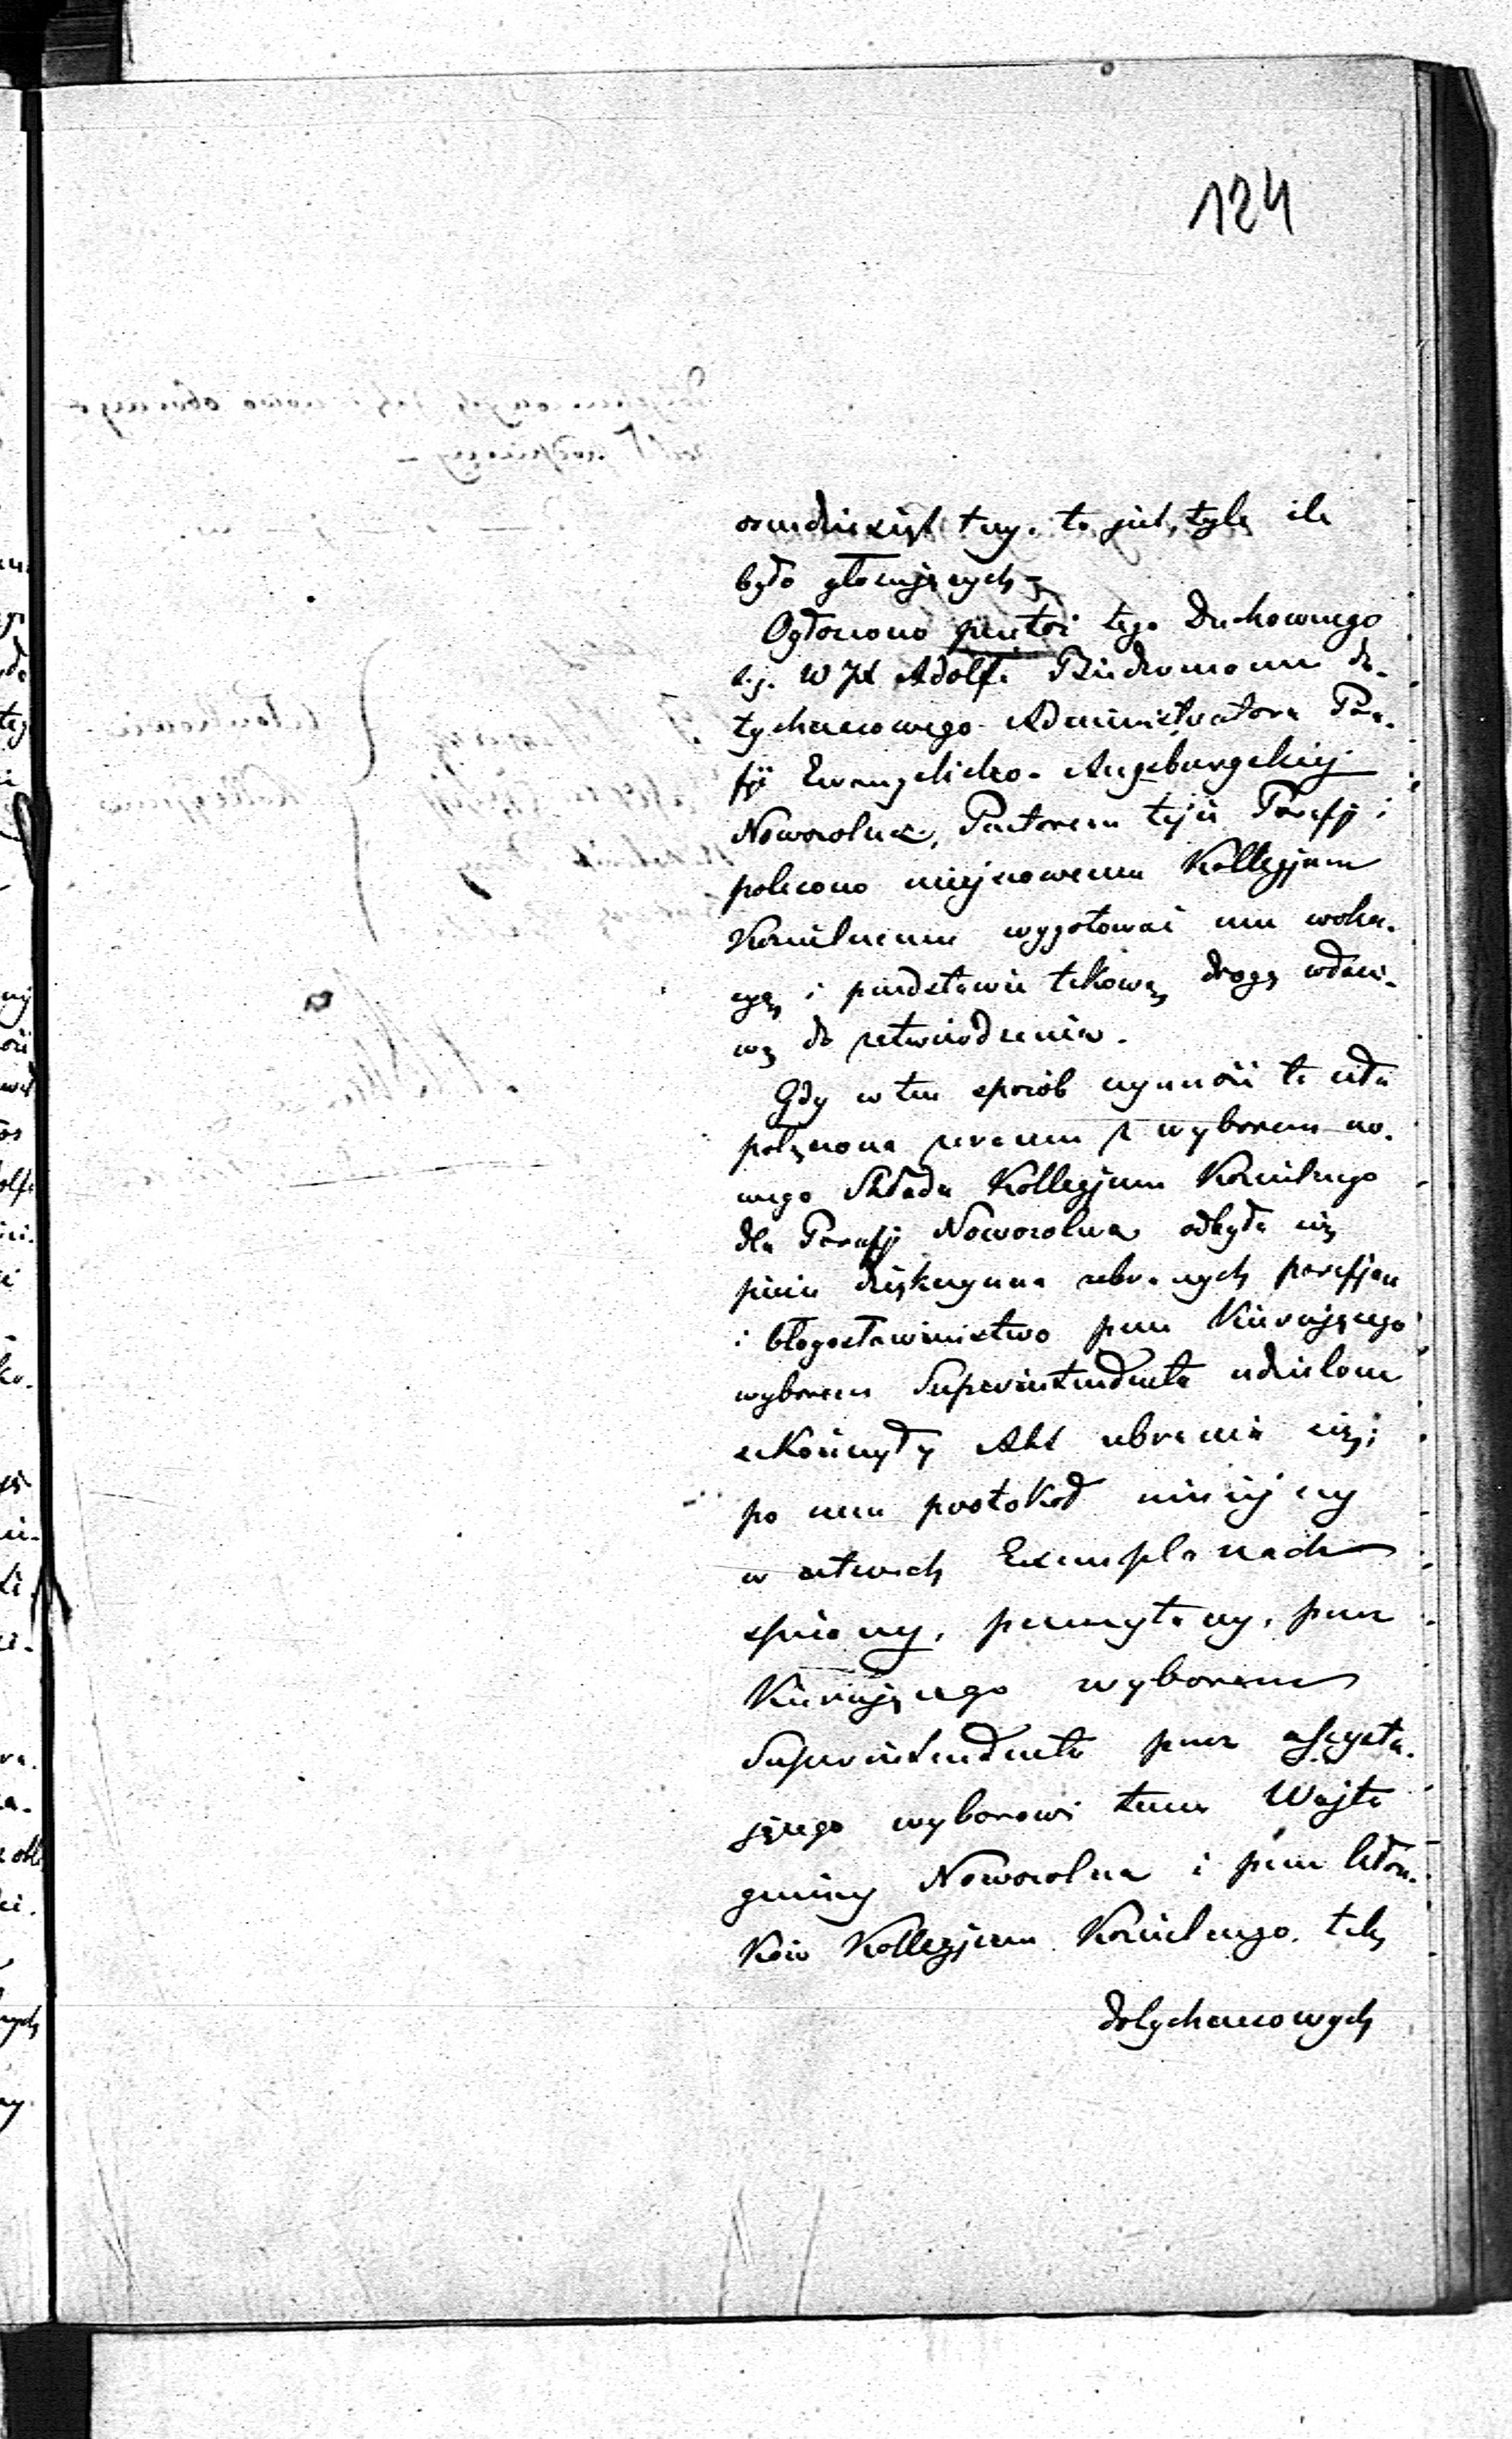 124
osmdziesiąt trzy. to jest, tylę ile
było głosujących
Ogłoszono przeto tego Duchownego
t.j. W JX Adolfa do-
tychczasowego Administratora Para-
fji Ewangelicko-Augsburgskiej
Nowosolna, Pastorem tejże Parafji i
polecono miejscowemu Kollegjum
Kościelnemu wygotować mu woka-
cyę i przedstawić takową drogą właści-
wą do zatwierdzenia.
Gdy w ten sposób czynność ta cała
połączona zarazem z wyborem no-
wego Składu Kollegjum Kościelnego
dla Parafji Nowosolna odbyła się
pieśń dziękczynna zebranych parafjan
i błogosławieństwo przez Kierującego
wyborem Superintendenta udzielone
zakończyły Akt zebrania się;
po czem protokół niniejszy
w dwóch Exemplarzach
spisany, przeczytany, przez
Kierującego wyborem
Superintendenta przez assystu-
jącego wyborowi temu Wójta
gminy Nowosolna i przez Człon-
ków Kollegjum Kościelnego. tak
dotychczasowych